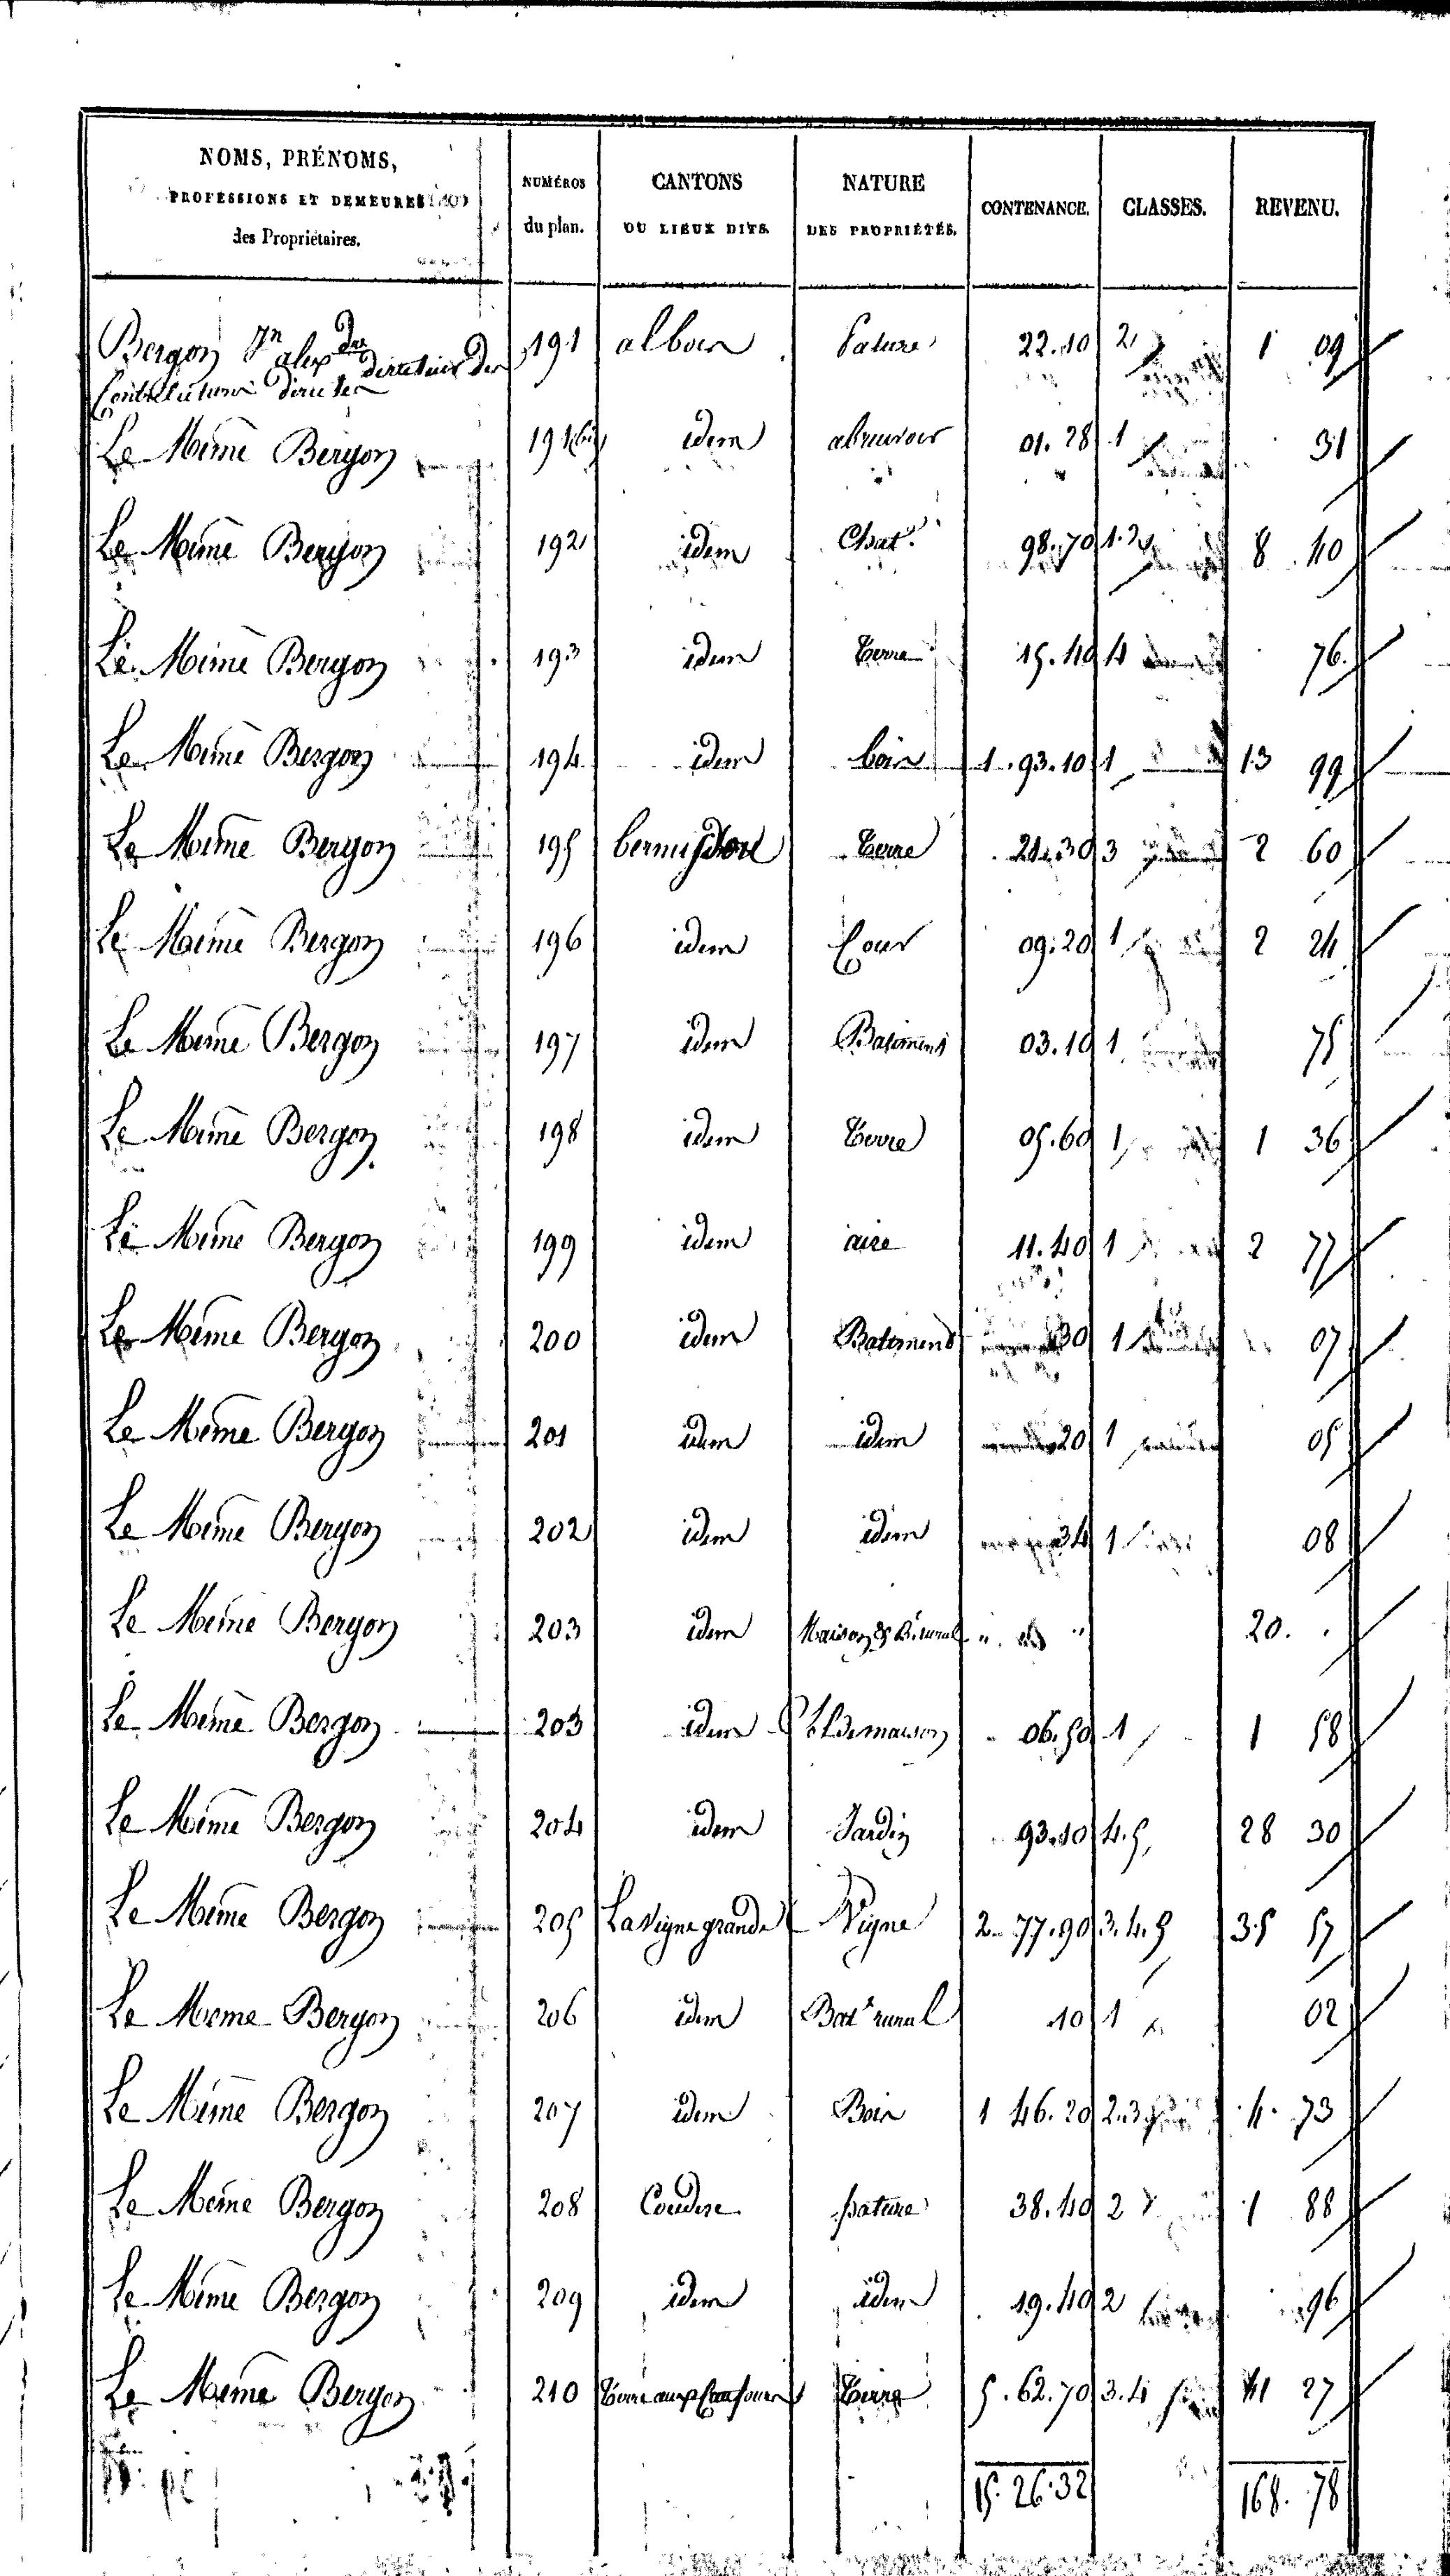 NOMS, PRÉNOMS, PROFESSIONS ET DEMEURES des Propriétaires. | NUMÉROS du plan. | CANTONS OU LIEUX DITS. | NATURE DES PROPRIÉTÉS. | CONTENANCE. | CLASSES. | REVENU.
Bergon Jn alexdre directeur des | 191 | albois | Pature | 22.10 | 2 | 1 09
Contributions directes
Le Même Bergon | 191 bis | idem | abreuvoir | 01.28 | 1 | 31
Le Même Bergon | 192 | idem | Chat. | 98.70 | 1.2 | 8 40
Le Même Bergon | 193 | idem | Terre | 15.40 | 4 | 76
Le Même Bergon | 194 | idem | bois | 1.93.10 | 1 | 13 99
Le Même Bergon | 195 | | Terre | 21.30 | 3 | 2 60
Le Même Bergon | 196 | idem | Cour | 09.20 | 1 | 2 24
Le Même Bergon | 197 | idem | Batiment | 03.10 | 1 | 75
Le Même Bergon | 198 | idem | Terre | 05.60 | 1 | 1 36
Le Même Bergon | 199 | idem | aire | 11.40 | 1 | 2 77
Le Même Bergon | 200 | idem | Batiment | 30 | 1 | 07
Le Même Bergon | 201 | idem | idem | 20 | 1 | 05
Le Même Bergon | 202 | idem | idem | 34 | 1 | 08
Le Même Bergon | 203 | idem | Maison & B. rural | " " " | 20 .
Le Même Bergon | 203 | idem | Sol de maison | 06.50 | 1 | 1 58
Le Même Bergon | 204 | idem | Jardin | 93.10 | 4.5 | 28 30
Le Même Bergon | 205 | La Vigne grande | Vigne | 2.77.90 | 3.4.5 | 35 57
Le Meme Bergon | 206 | idem | Bat rural | 10 | 1 | 02
Le Même Bergon | 207 | idem | Bois | 1 46.20 | 2.3 | 4 73
Le Même Bergon | 208 | Couderc | pature | 38.40 | 2 | 1 88
Le Même Bergon | 209 | idem | idem | 19.40 | 2 | 96
Le Même Bergon | 210 | | Terre | 5.62.70 | 3.4 | 41 27
15.26.32 | 168.78